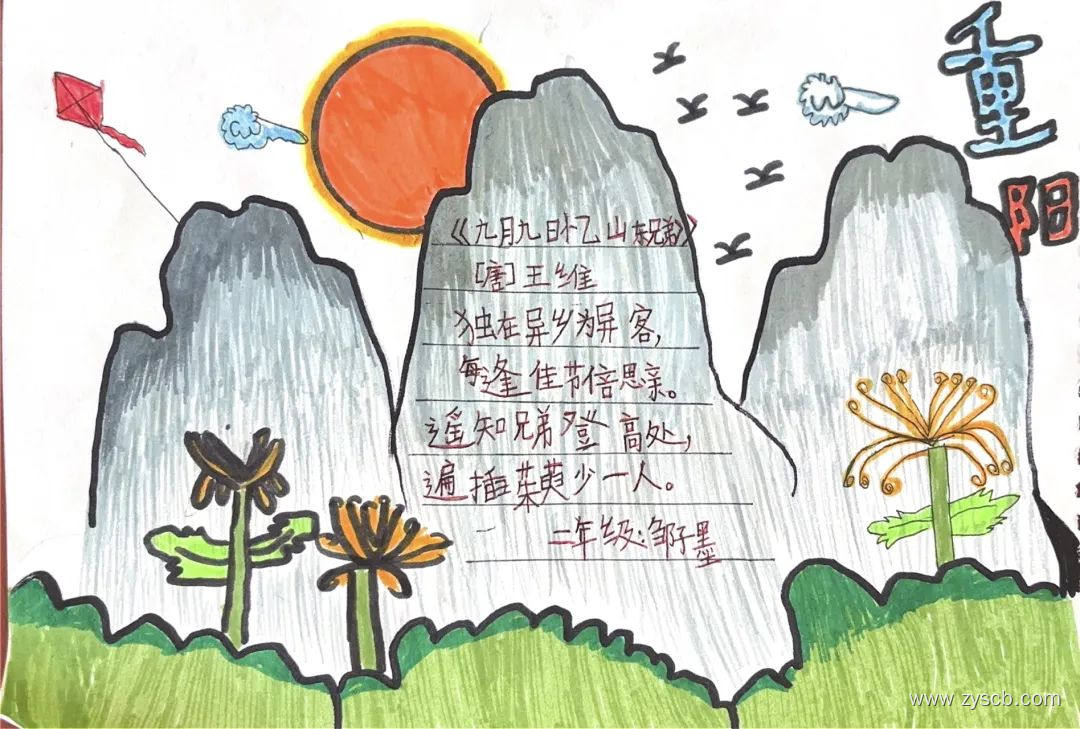 重阳
《九月九日忆山东兄弟》
[唐]王维
独在异乡为异客,
每逢佳节倍思亲。
遥知兄弟登高处,
遍插茱萸少一人。
二年级:邹子墨
www.zyscb.com